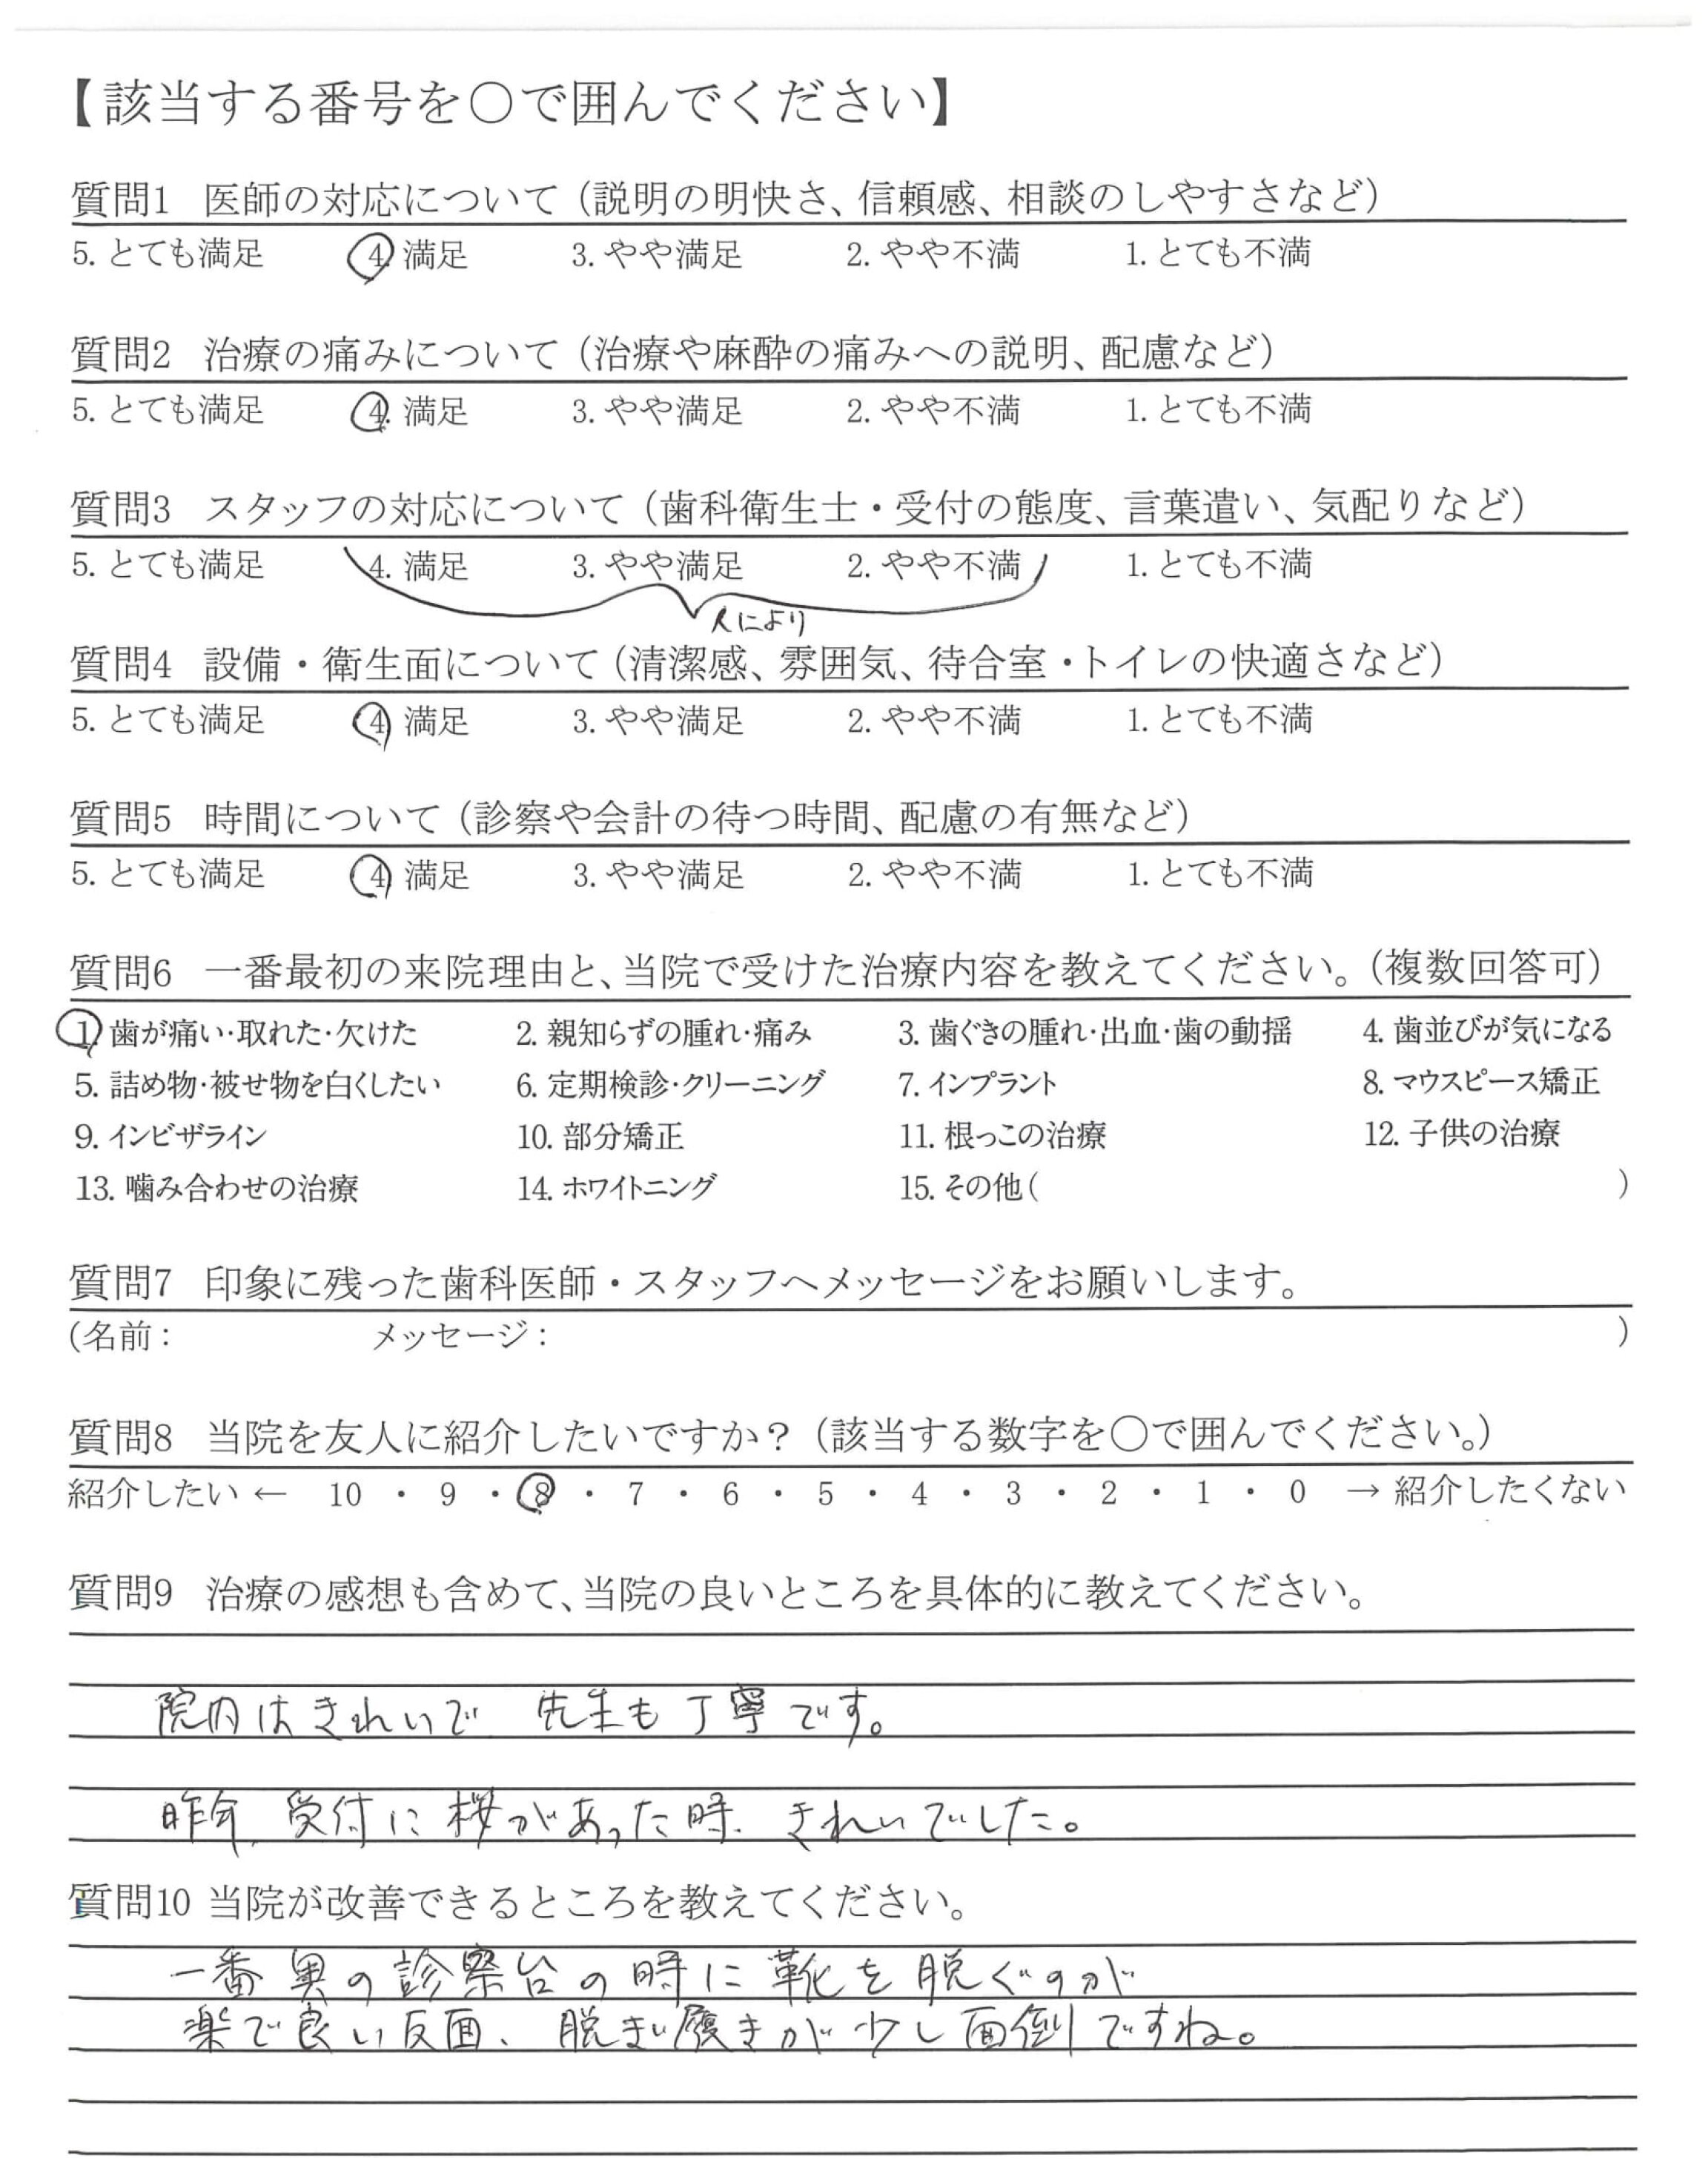 【該当する番号を〇で囲んでください】
質問1 医師の対応について（説明の明快さ、信頼感、相談のしやすさなど）
5. とても満足 4. 満足 3. やや満足 2. やや不満 1. とても不満
質問2 治療の痛みについて（治療や麻酔の痛みへの説明、配慮など）
5. とても満足 4. 満足 3. やや満足 2. やや不満 1. とても不満
質問3 スタッフの対応について（歯科衛生士・受付の態度、言葉遣い、気配りなど）
5. とても満足 4. 満足 3. やや満足 2. やや不満 1. とても不満
人により
質問4 設備・衛生面について（清潔感、雰囲気、待合室・トイレの快適さなど）
5. とても満足 4. 満足 3. やや満足 2. やや不満 1. とても不満
質問5 時間について（診察や会計の待つ時間、配慮の有無など）
5. とても満足 4. 満足 3. やや満足 2. やや不満 1. とても不満
質問6 一番最初の来院理由と、当院で受けた治療内容を教えてください。（複数回答可）
1. 歯が痛い・取れた・欠けた 2. 親知らずの腫れ・痛み 3. 歯ぐきの腫れ・出血・歯の動揺 4. 歯並びが気になる
5. 詰め物・被せ物を白くしたい 6. 定期検診・クリーニング 7. インプラント 8. マウスピース矯正
9. インビザライン 10. 部分矯正 11. 根っこの治療 12. 子供の治療
13. 噛み合わせの治療 14. ホワイトニング 15. その他（ ）
質問7 印象に残った歯科医師・スタッフへメッセージをお願いします。
（名前： メッセージ： ）
質問8 当院を友人に紹介したいですか？（該当する数字を〇で囲んでください。）
紹介したい ← 10 ・ 9 ・ 8 ・ 7 ・ 6 ・ 5 ・ 4 ・ 3 ・ 2 ・ 1 ・ 0 → 紹介したくない
質問9 治療の感想も含めて、当院の良いところを具体的に教えてください。
院内はきれいで 先生も丁寧です。
昨年、受付に桜があった時、きれいでした。
質問10 当院が改善できるところを教えてください。
一番奥の診察台の時に靴を脱ぐのが
楽で良い反面、脱ぎ履きが少し面倒ですね。